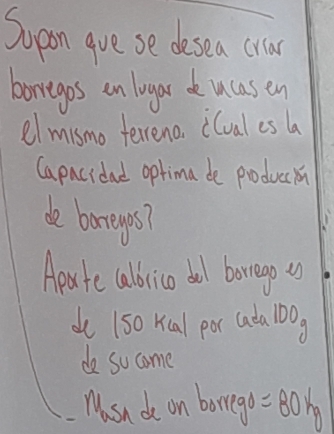 Supon que se desea criar
borregos en lugar de vacas en
el mismo terreno. ¿Cual es la
Capacidad optima de producción
de borregos?
Aporte calórico del borrego es
de 150 Kcal por cada 100g
de su carne
- Masa de un borrego = 80 kg